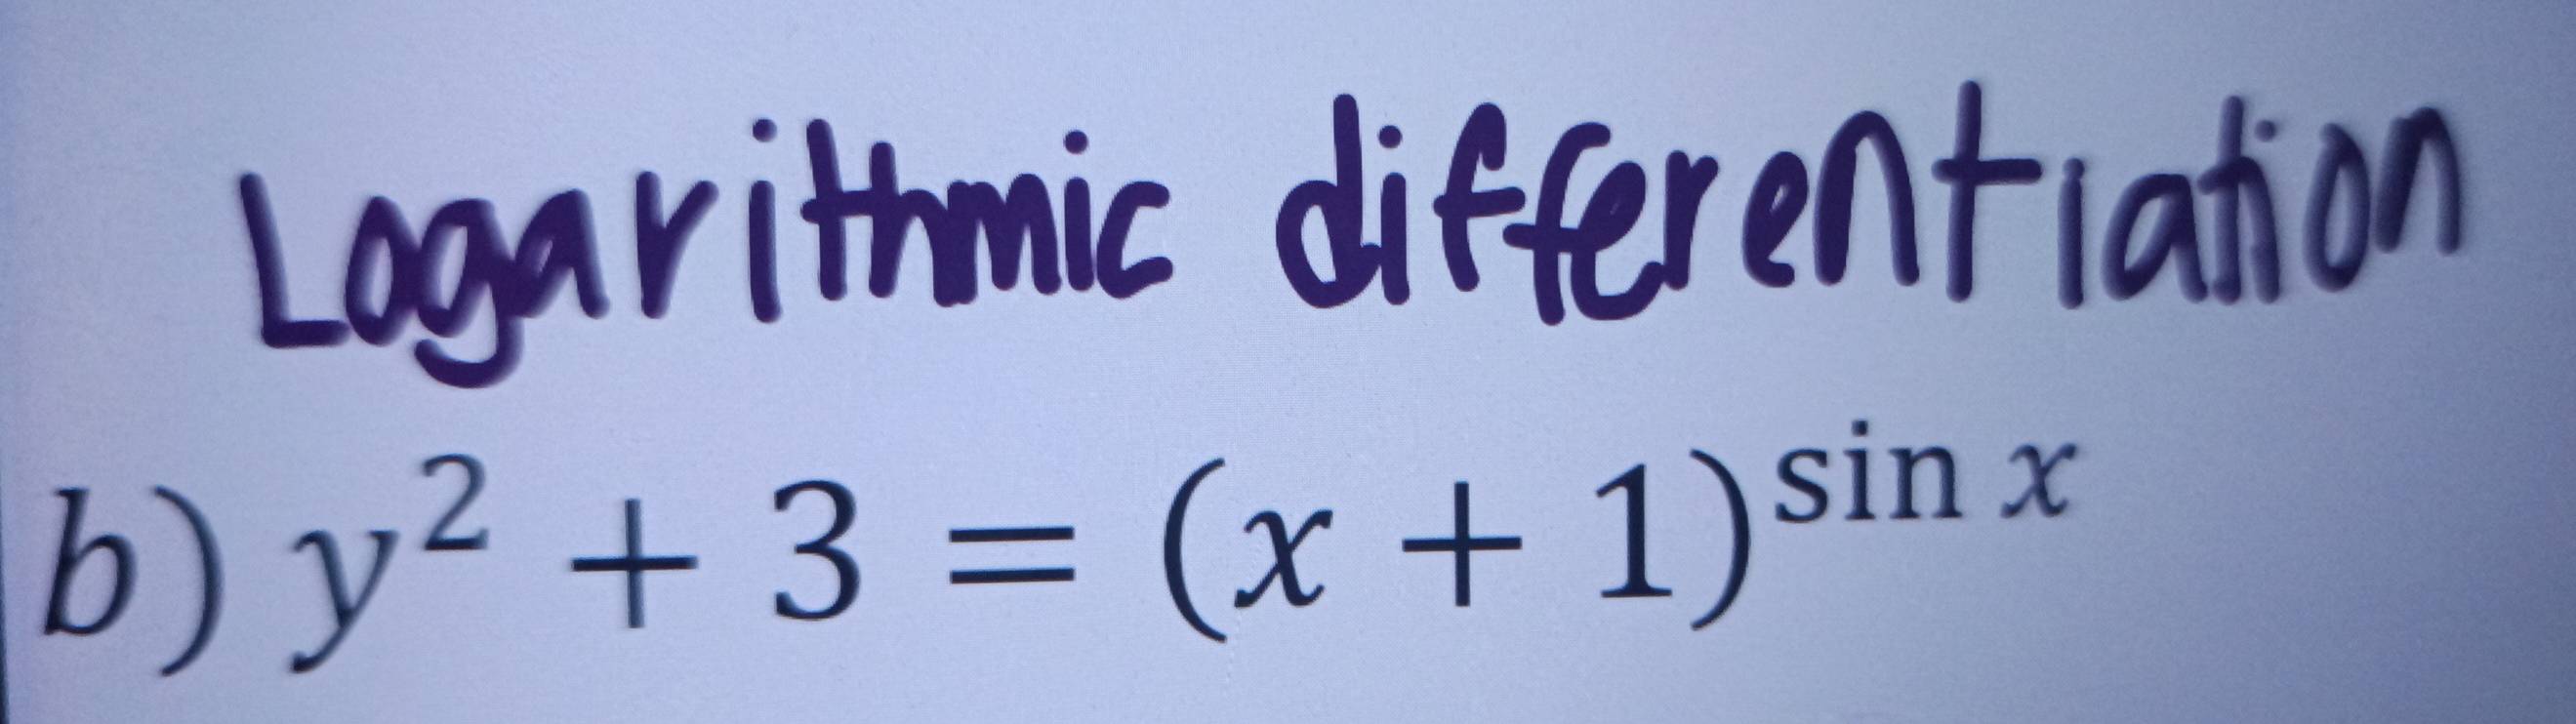 Logarithmic differentiation
b) y² + 3 = (x + 1)^{sin x}